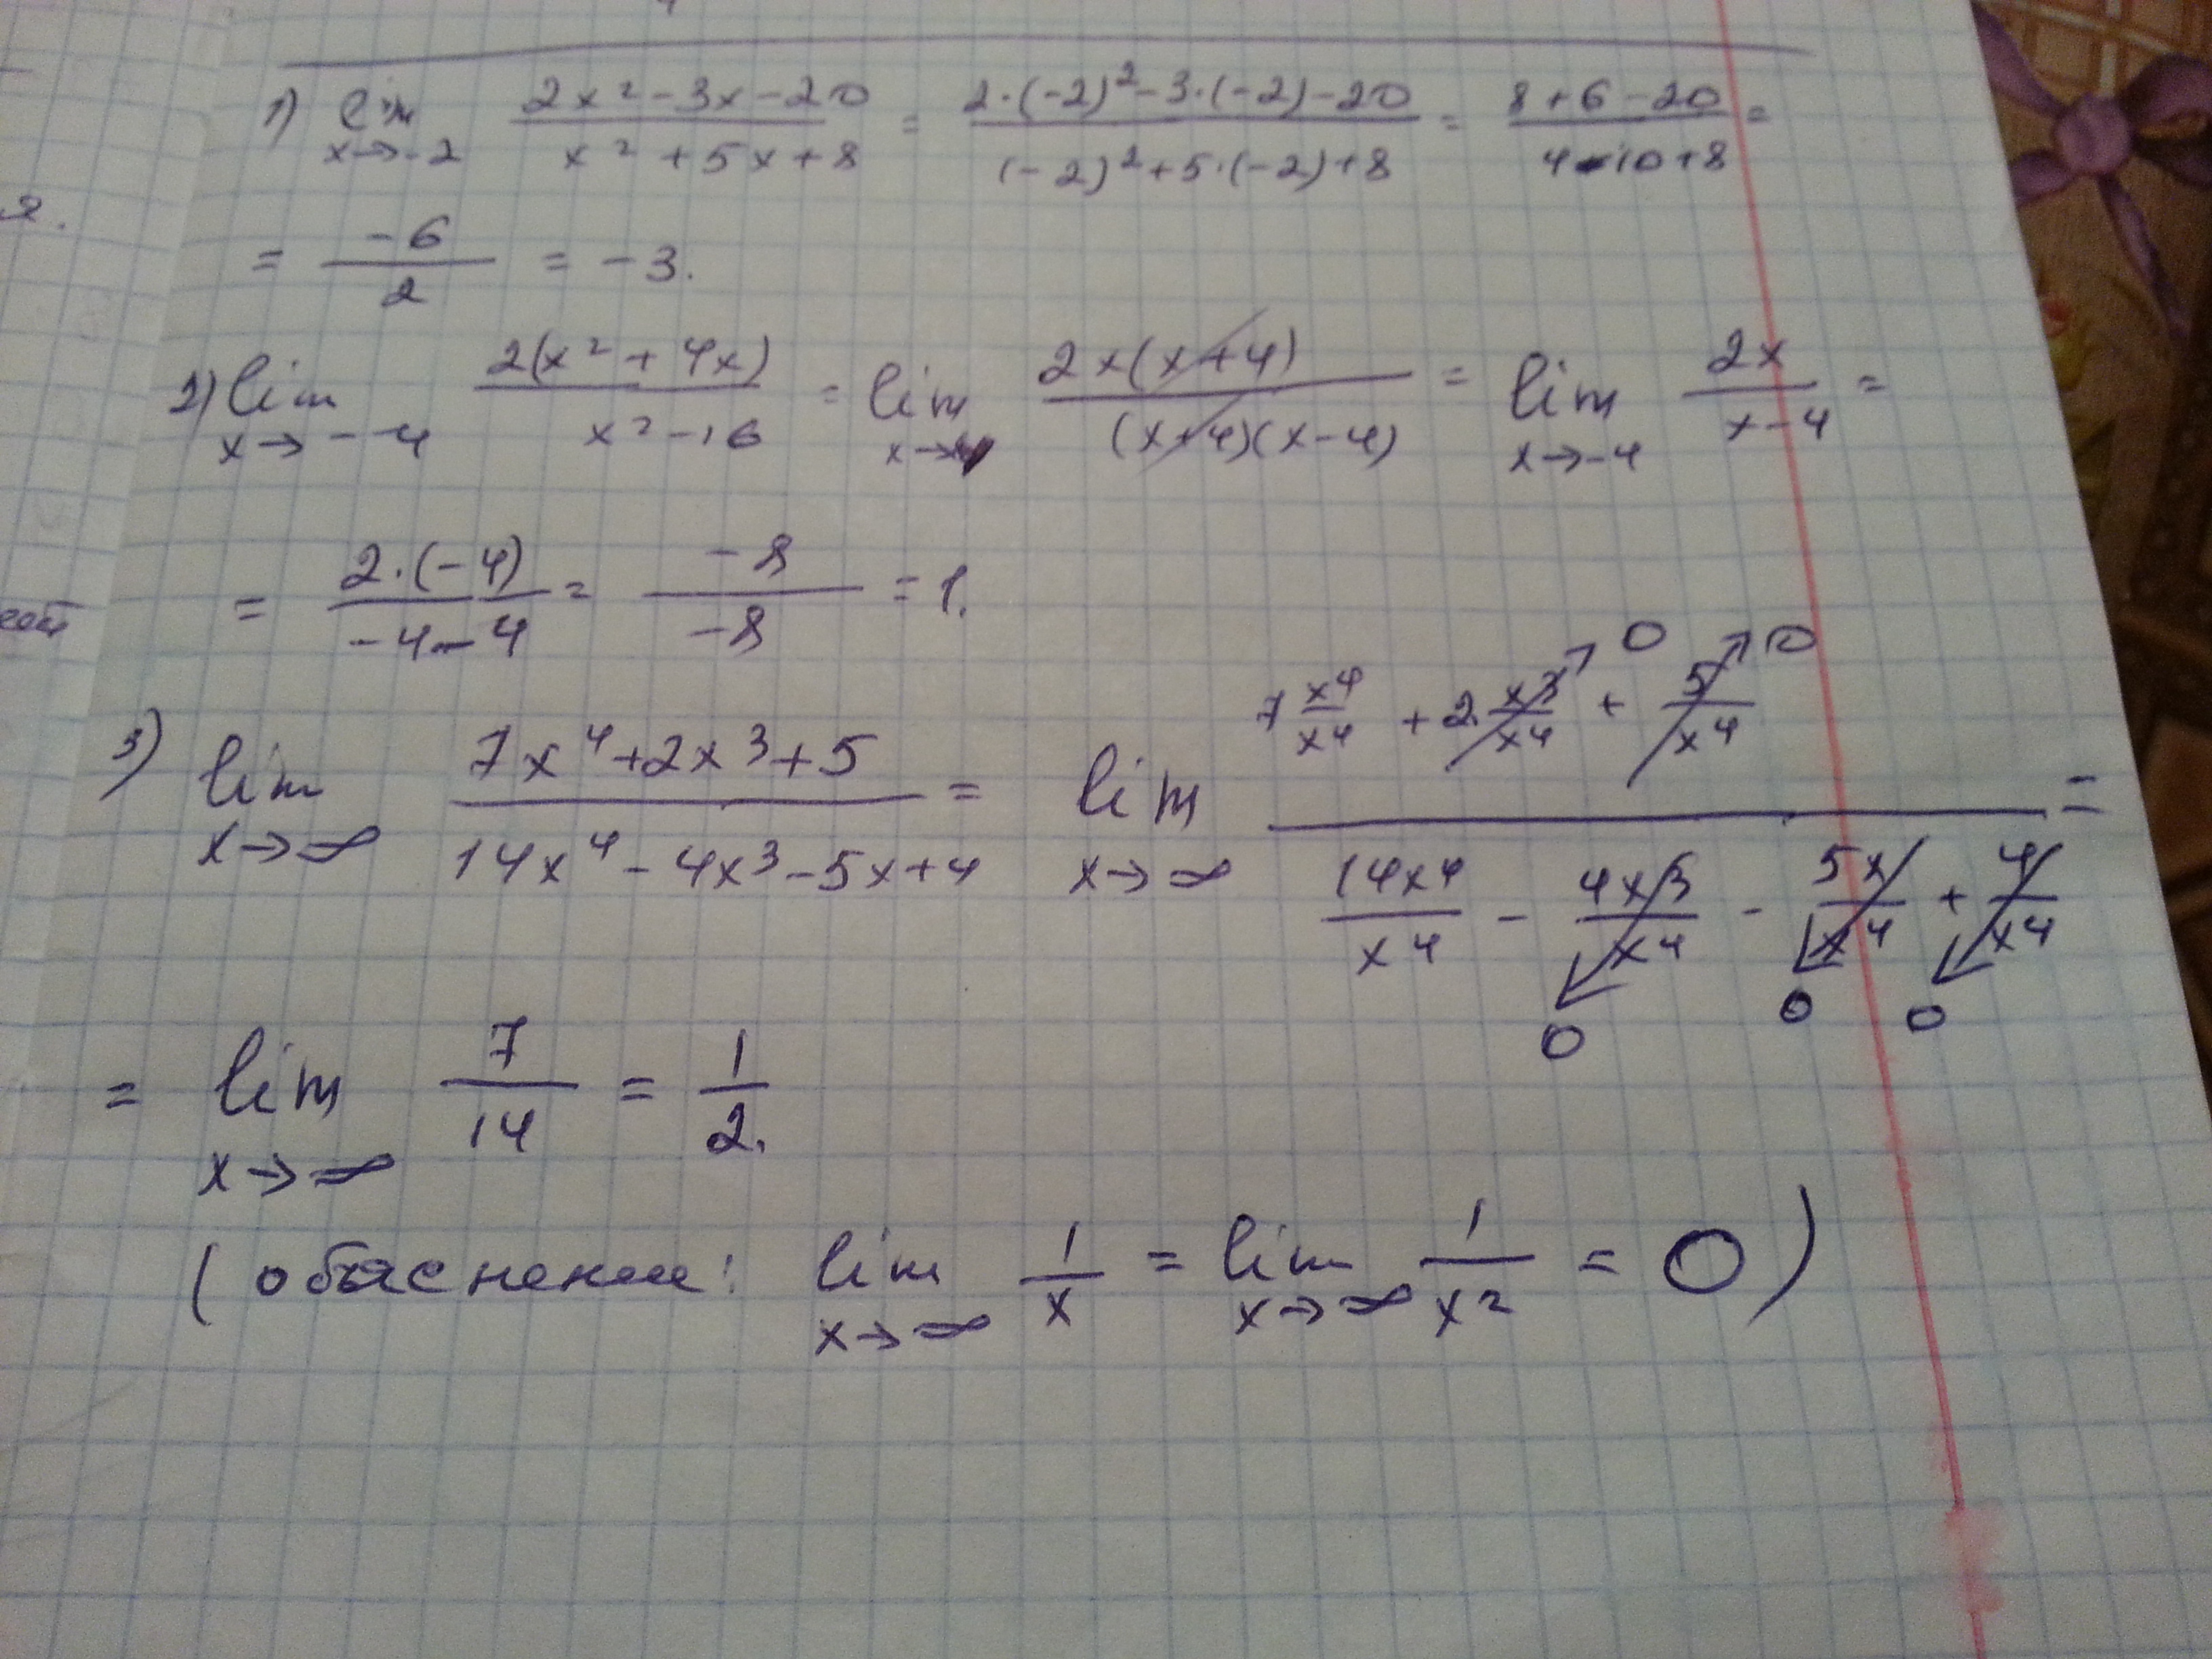 1) lim x→-2 (2x² - 3x - 20)/(x² + 5x + 8) = (2·(-2)² - 3·(-2) - 20)/((-2)² + 5·(-2) + 8) = (8 + 6 - 20)/(4 - 10 + 8) =
= -6/2 = -3.
2) lim x→-4 2(x² + 4x)/(x² - 16) = lim 2x(x+4)/((x+4)(x-4)) = lim x→-4 2x/(x-4) =
= 2·(-4)/(-4-4) = -8/-8 = 1.
3) lim x→∞ (7x⁴ + 2x³ + 5)/(14x⁴ - 4x³ - 5x + 4) = lim x→∞ (7 x⁴/x⁴ + 2·x³/x⁴ → 0 + 5/x⁴ → 0)/(14x⁴/x⁴ - 4x³/x⁴ → 0 - 5x/x⁴ → 0 + 4/x⁴ → 0) =
= lim x→∞ 7/14 = 1/2.
(обяснение: lim x→∞ 1/x = lim x→∞ 1/x² = 0)